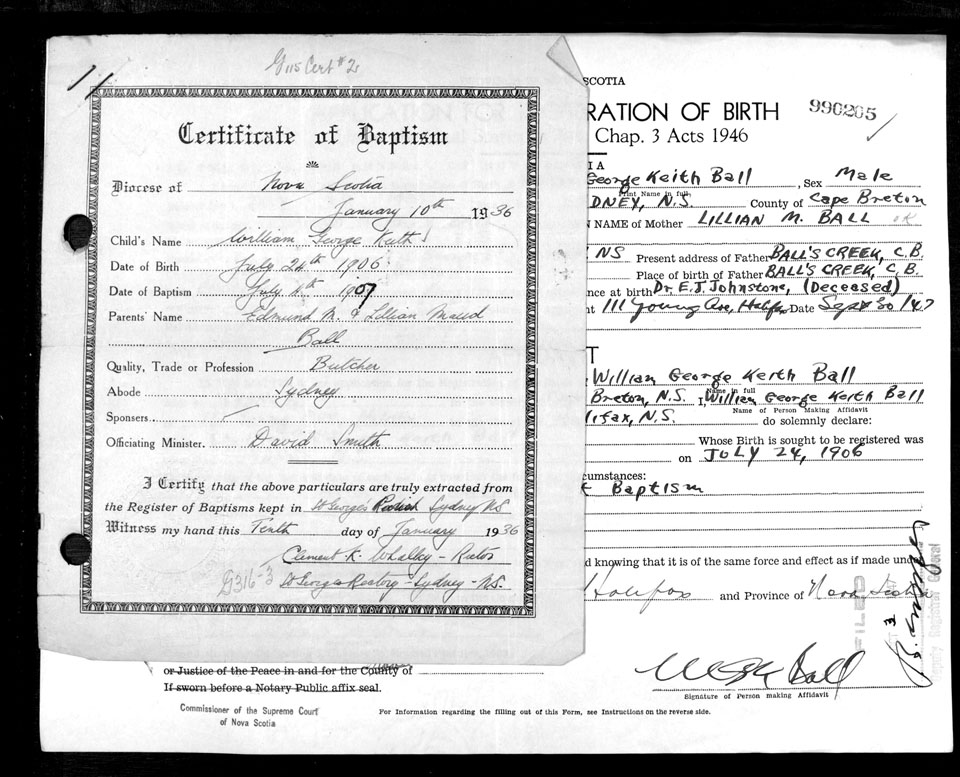 G 115 Cert # 2
11
Certificate of Baptism
Diocese of Nova Scotia
January 10th 1936
Child's Name William George Keith
Date of Birth July 24th 1906
Date of Baptism July 4th 1907
Parents' Name Edmund M. & Lilian Maud
Ball
Quality, Trade or Profession Butcher
Abode Sydney
Sponsers
Officiating Minister. David Smith
I Certify that the above particulars are truly extracted from
the Register of Baptisms kept in St George's Parish Sydney NS
Witness my hand this Tenth day of January 1936
Clement K. Whalley - Rector
St Georges Rectory - Sydney - N.S.
G316-3
SCOTIA
RATION OF BIRTH 990205
Chap. 3 Acts 1946
I A
George Keith Ball, Sex Male
Print Name in full
DNEY, N.S. County of Cape Breton
NAME of Mother LILLIAN M. BALL OK
NS Present address of Father BALL'S CREEK, C.B.
Place of birth of Father BALL'S CREEK, C.B.
nce at birth Dr. E.J. Johnstone, (Deceased)
nt 111 Young Ave, Halifax Date Sept 30/47
T
William George Keith Ball
Name in full
Breton, N.S. I, William George Keith Ball
Name of Person Making Affidavit
lifax, N.S. do solemnly declare:
Whose Birth is sought to be registered was
on JULY 24, 1906
cumstances:
Baptism
d knowing that it is of the same force and effect as if made under
Halifax and Province of Nova Scotia
FILED
Deputy Registrar General
W G K Ball
Signature of Person making Affidavit
or Justice of the Peace in and for the County of
If sworn before a Notary Public affix seal.
Commissioner of the Supreme Court
of Nova Scotia
For Information regarding the filling out of this Form, see Instructions on the reverse side.